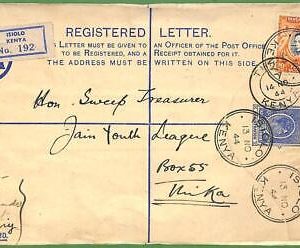 ISIOLO
KENYA
No. 192
REGISTERED LETTER.
THIS LETTER MUST BE GIVEN TO AN OFFICER OF THE POST OFFICE
TO BE REGISTERED, AND A RECEIPT OBTAINED FOR IT.
THE ADDRESS MUST BE WRITTEN ON THIS SIDE.
Hon. Sweep Treasurer
Jain Youth League
Box 55
Thika
ISIOLO
13 NO
44
KENYA
ISIOLO
13 NO
44
KENYA
14 NO
44
KENYA